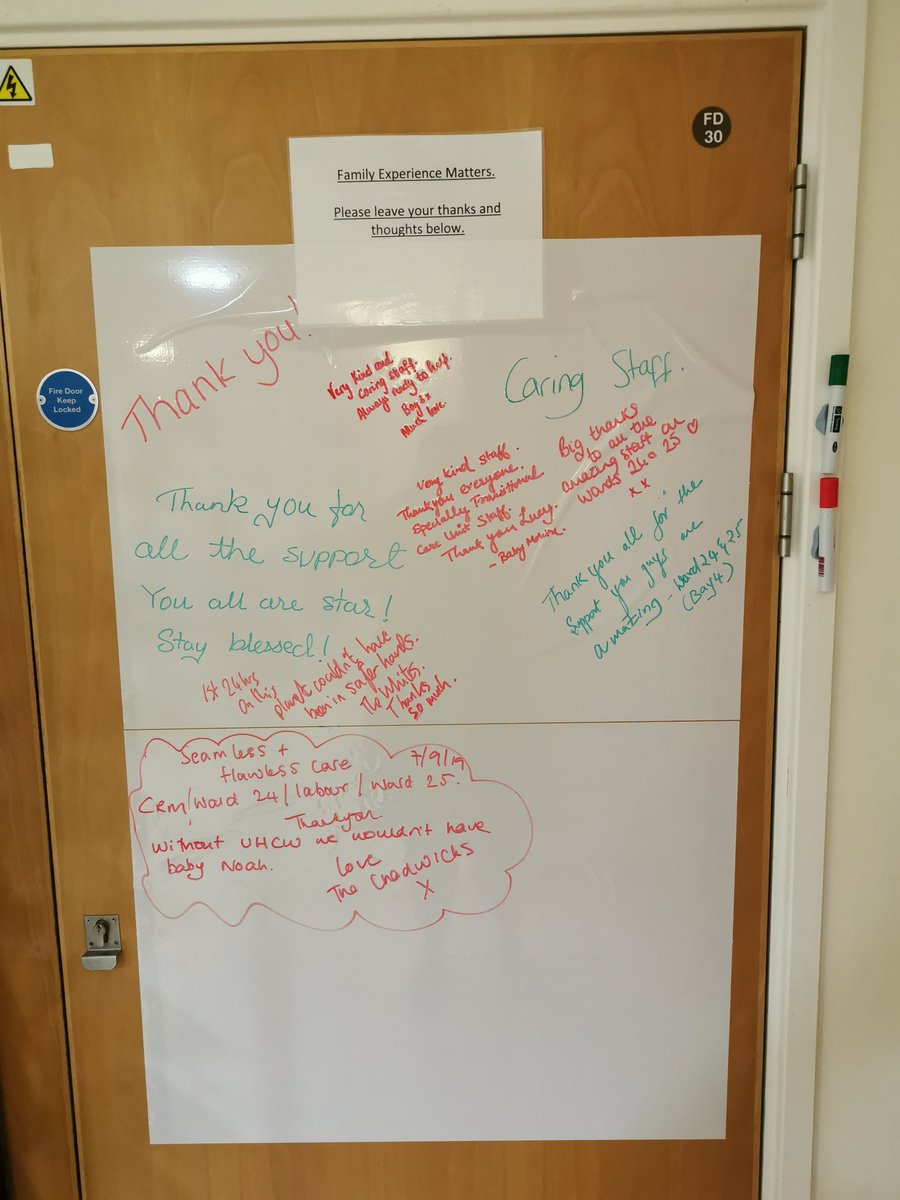 FD
30
Family Experience Matters.
Please leave your thanks and
thoughts below.
Fire Door
Keep
Locked
Thank you!
Very Kind and
caring staff.
Always ready to help.
Bay 2 x
Much love.
Caring Staff.
Very kind staff.
Thank you everyone.
Specially Transitional
Care Unit Staff.
Thank you Lucy.
- Baby
Big thanks
to all the
amazing staff on
wards 24 & 25 ♡
x x
Thank you for
all the support
You all are star!
Stay blessed!
Thank you all for the
Support you guys are
amazing - Ward 24 & 25
(Bay 4)
1st 24hrs
on this
planet couldn't have
been in safer hands.
The Whites.
Thanks
so much.
Seamless +
flawless care
7/9/19
CRM/Ward 24/labour/Ward 25.
Thankyou.
without UHCW we wouldn't have
baby Noah.
Love
The Chadwicks
X